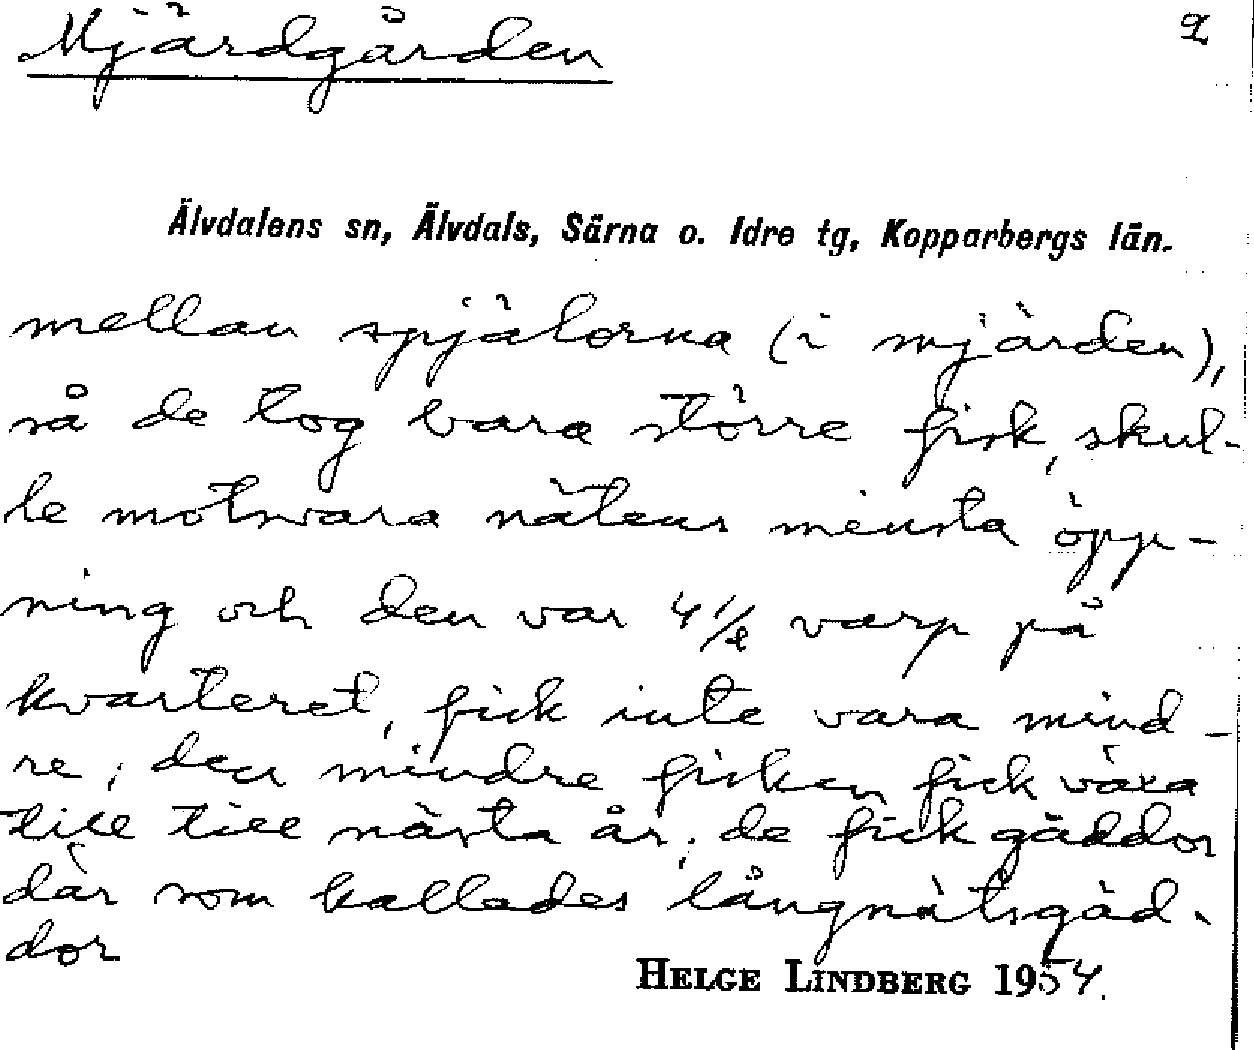 Mjärdgården 2
Älvdalens sn, Älvdals, Särna o. Idre tg, Kopparbergs län.
mellan spjälorna (i mjärden),
så de tog bara större fisk, skul-
le motsvara nätens minsta öpp-
ning och den var 4 1/2 varp på
kvarteret, fick inte vara mind-
re; den mindre fisken fick växa
till till nästa år; de fick gäddor
där som kallades långnätsgäd-
dor
HELGE LINDBERG 1954.